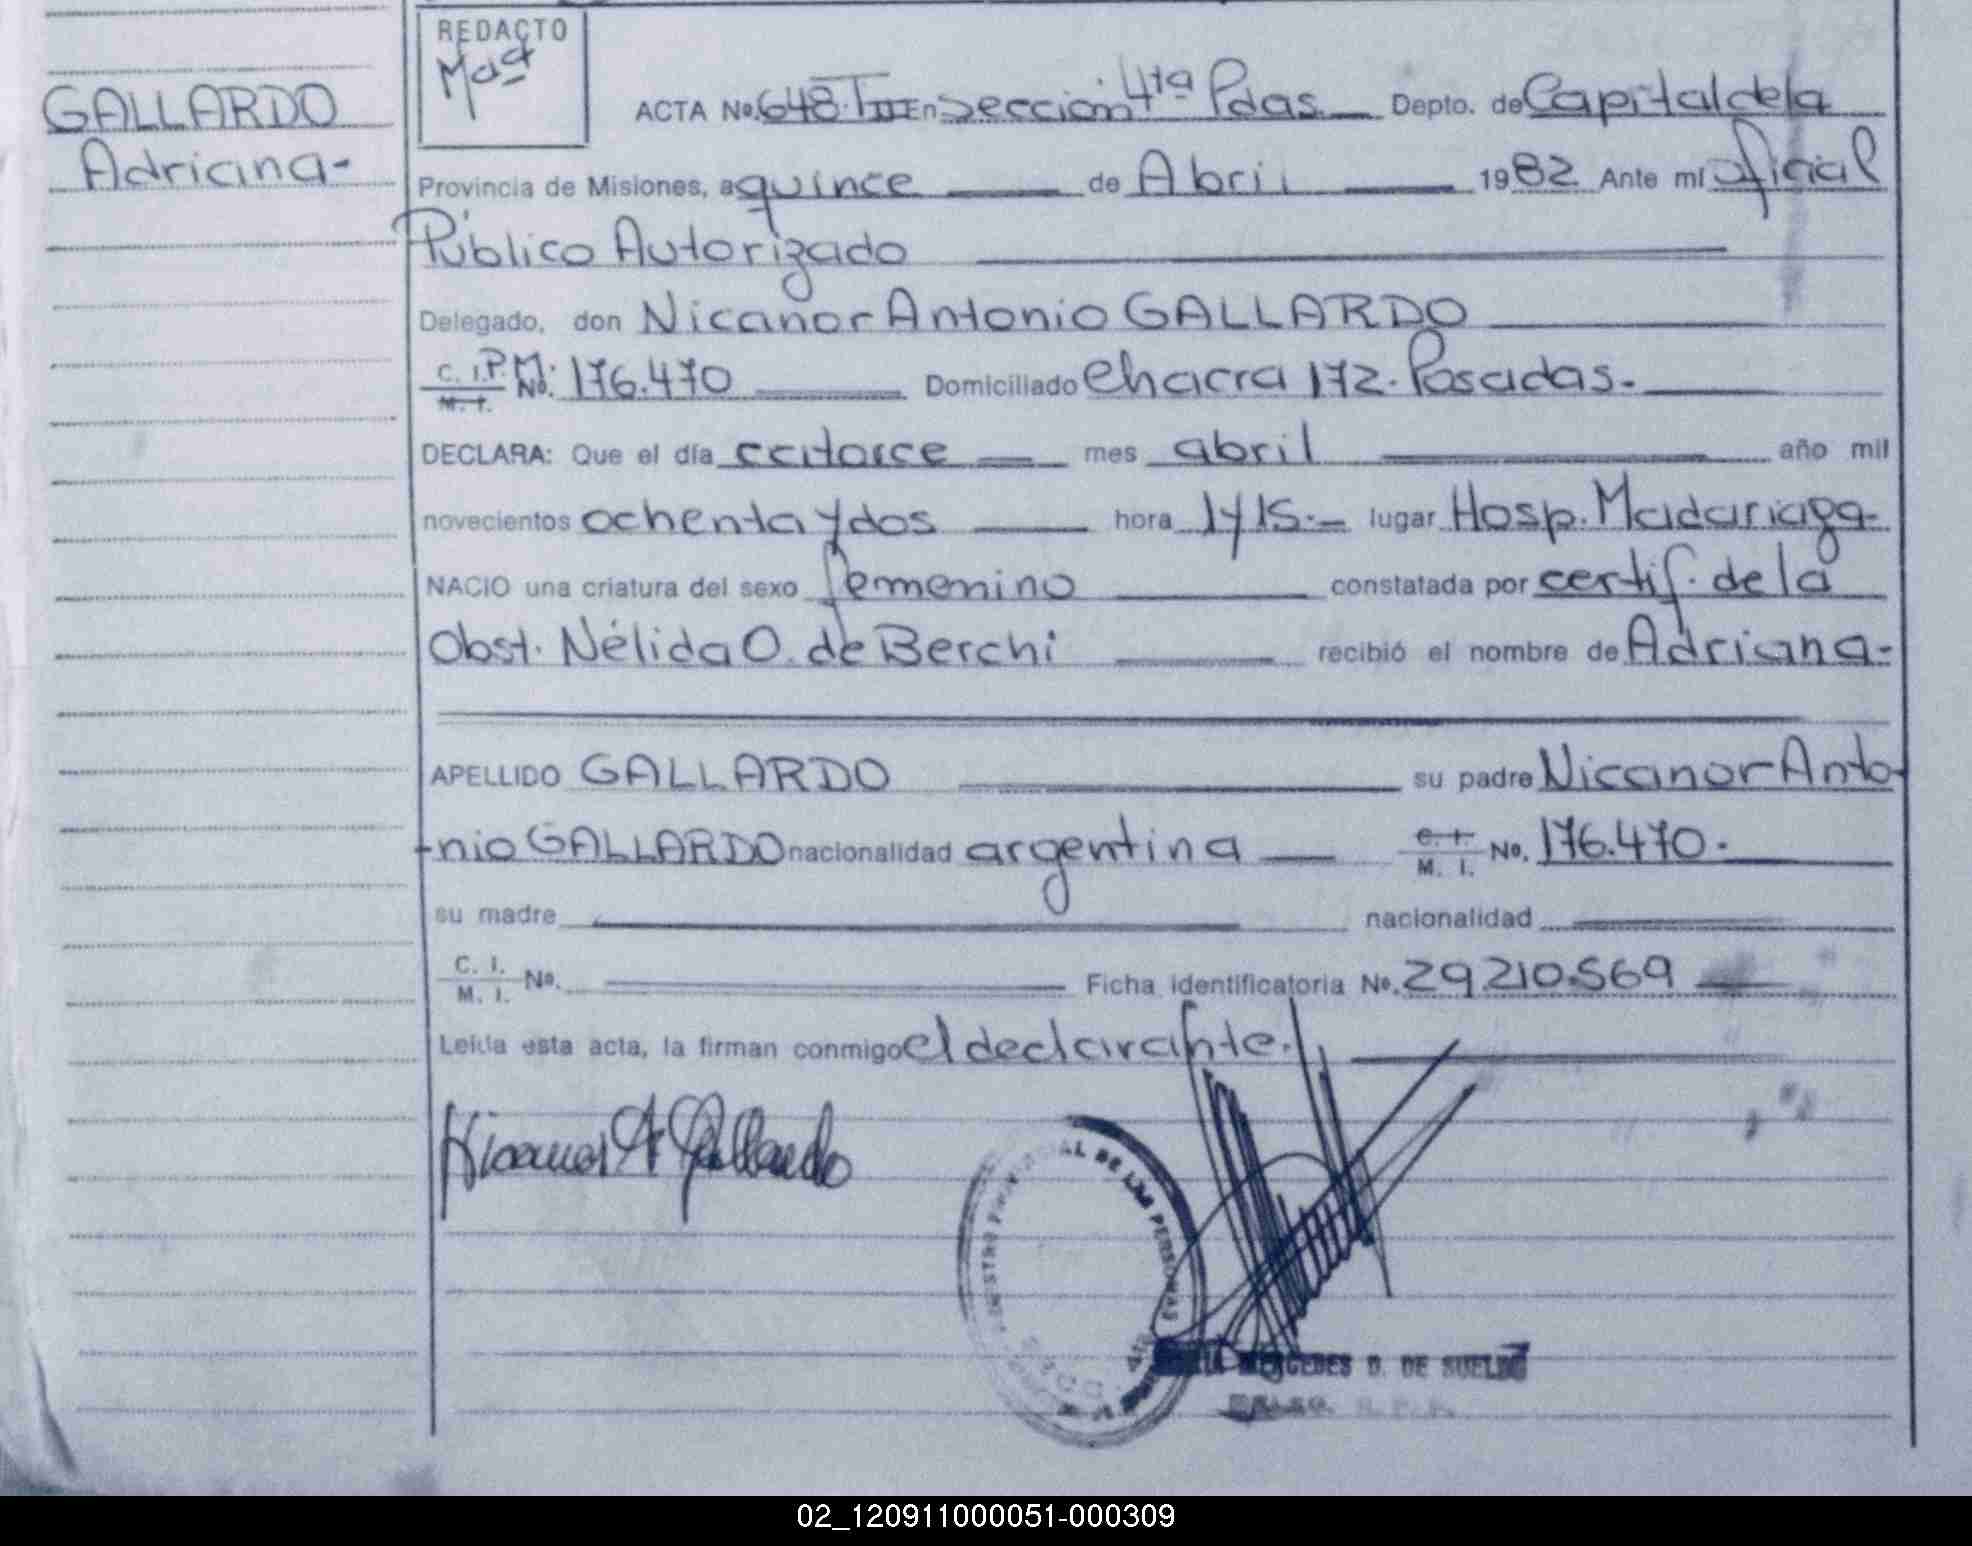 REDACTO
Maa
GALLARDO
Adriana-
ACTA No. 648. TIII En Sección 4ta Pdas. Depto. de Capital de la
Provincia de Misiones, a quince de Abril 1982 Ante mí Oficial
Público Autorizado
Delegado, don Nicanor Antonio GALLARDO
C. I. P. M. No. 176.470 Domiciliado Chacra 172. Posadas.
M. I.
DECLARA: Que el día catorce mes abril año mil
novecientos ochenta y dos hora 1y15.- lugar Hosp. Madariaga-
NACIO una criatura del sexo femenino constatada por certif. de la
Obst. Nélida O. de Berchi recibió el nombre de Adriana-
APELLIDO GALLARDO su padre Nicanor Anto-
-nio GALLARDO nacionalidad argentina C. I. M. I. No. 176.470.
su madre nacionalidad
C. I. M. I. No. Ficha identificatoria No. 29.210.569
Leída esta acta, la firman conmigo el declarante.
Nicanor A Gallardo
PROVINCIAL DE LAS PERSONAS
MERCEDES D. DE SUELDO
02_120911000051-000309